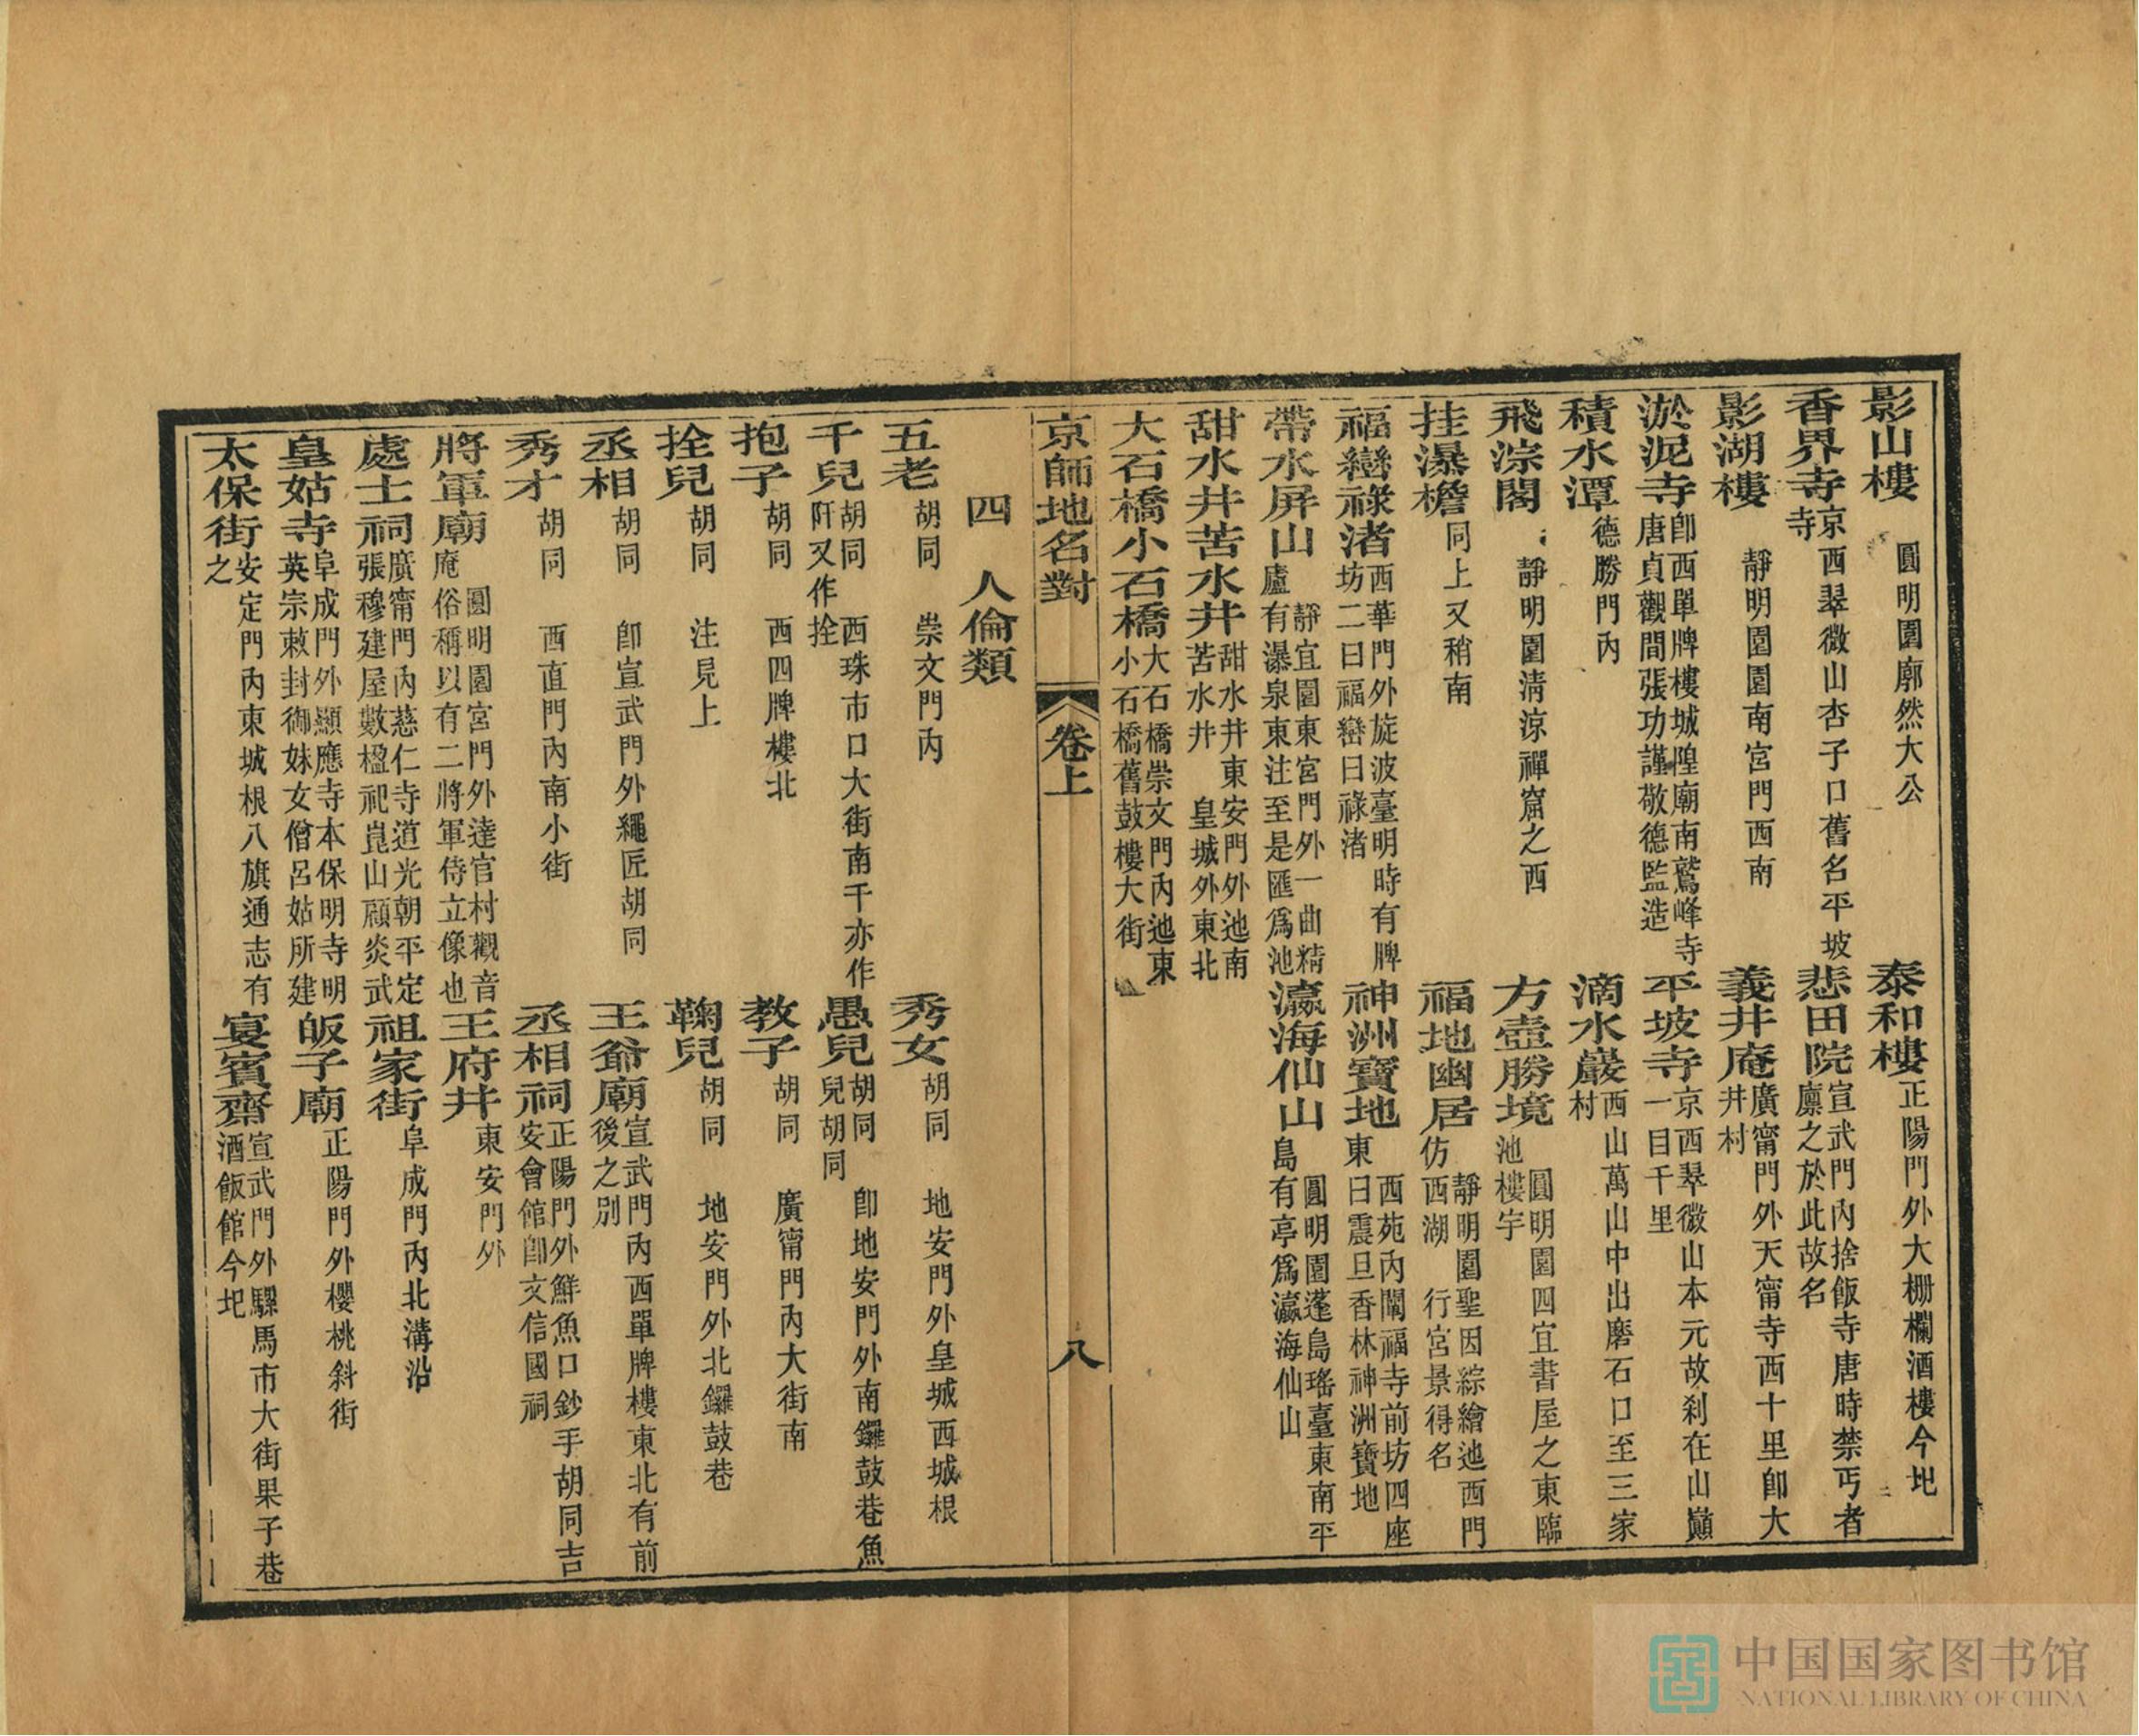 影山樓 圓明園廓然大公 泰和樓 正陽門外大柵欄酒樓今圯
香界寺 京西翠微山杏子口舊名平坡寺 悲田院 宣武門內捨飯寺唐時禁丐者廩之於此故名
影湖樓 靜明園園南宮門西南 義井庵 廣甯門外天甯寺西十里卽大井村
淤泥寺 卽西單牌樓城隍廟南鷲峰寺唐貞觀間張功謹敬德監造 平坡寺 京西翠微山本元故刹在山巔一目千里
積水潭 德勝門內 滴水巖 西山萬山中出磨石口至三家村
飛淙閣 靜明園淸涼禪窟之西 方壺勝境 圓明園四宜書屋之東臨池樓宇
挂瀑檐 同上又稍南 福地幽居 靜明園聖因綜繪池西門仿西湖 行宮景得名
福巒祿渚 西華門外旋波臺明時有牌坊二曰福巒曰祿渚 神洲寶地 西苑內闡福寺前坊四座東曰震旦香林神洲寶地
帶水屏山 靜宜園東宮門外一曲精廬有瀑泉東注至是匯爲池 瀛海仙山 圓明園蓬島瑤臺東南平島有亭爲瀛海仙山
甜水井苦水井 甜水井東安門外池南苦水井 皇城外東北
大石橋小石橋 大石橋崇文門內池東小石橋舊鼓樓大街
京師地名對 卷上 八
四 人倫類
五老 胡同 崇文門內 秀女 胡同 地安門外皇城西城根
千兒 胡同 西珠市口大街南千亦作阡又作拴 愚兒 胡同 卽地安門外南鑼鼓巷魚兒胡同
抱子 胡同 西四牌樓北 教子 胡同 廣甯門內大街南
拴兒 胡同 注見上 鞠兒 胡同 地安門外北鑼鼓巷
丞相 胡同 卽宣武門外繩匠胡同 王爺廟 宣武門內西單牌樓東北有前後之別
秀才 胡同 西直門內南小街 丞相祠 正陽門外鮮魚口鈔手胡同吉安會館卽文信國祠
將軍廟 圓明園宮門外達官村觀音庵俗稱以有二將軍侍立像也 王府井 東安門外
處士祠 廣甯門內慈仁寺道光朝平定張穆建屋數楹祀崑山顧炎武 祖家街 阜成門內北溝沿
皇姑寺 阜成門外顯應寺本保明寺明英宗敕封御妹女僧呂姑所建 皈子廟 正陽門外櫻桃斜街
太保街 安定門內東城根八旗通志有之 宴賓齋 宣武門外騾馬市大街果子巷酒飯館今圯
中国国家图书馆
NATIONAL LIBRARY OF CHINA